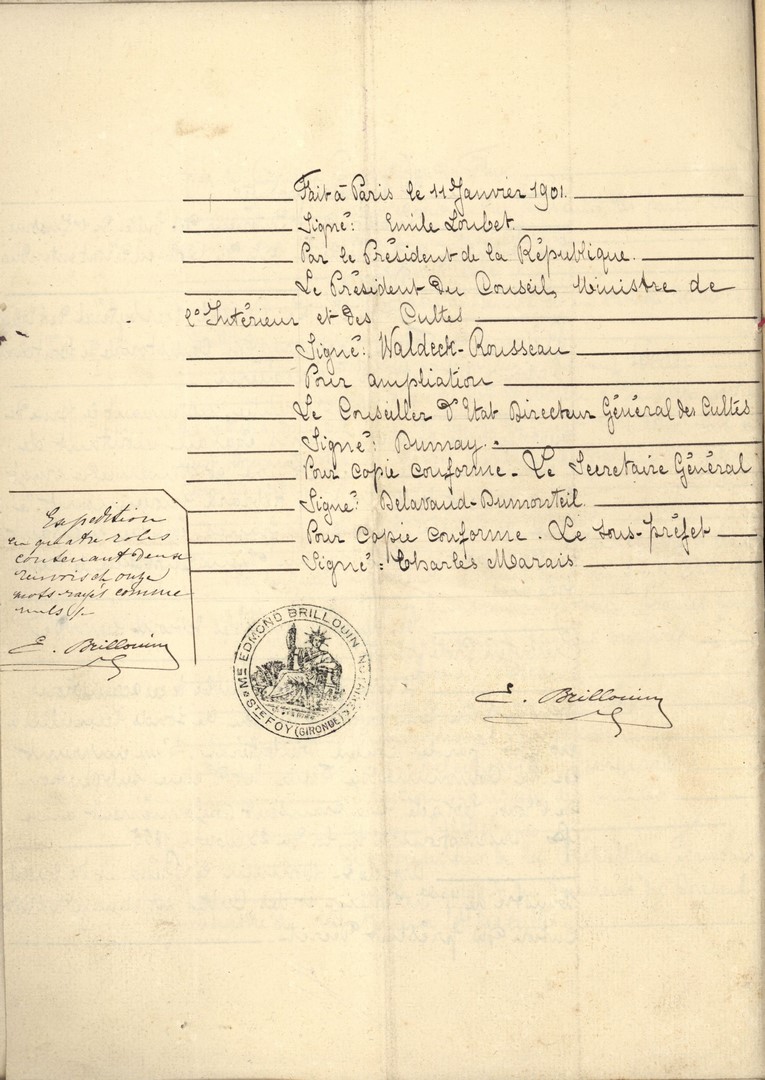 Fait à Paris le 11 Janvier 1901.
Signé: Emile Loubet.
Par le Président de la République.
Le Président du Conseil, Ministre de
l'Intérieur et des Cultes
Signé: Waldeck-Rousseau
Pour ampliation
Le Conseiller d'Etat Directeur Général des Cultes
Signé: Dumay.
Pour copie conforme - Le Secretaire Général
Signé: Delavaud-Dumonteil.
Pour copie conforme. Le sous-préfet
Signé: Charles Marais
Expédition
en quatre roles
contenant deux
renvois et onze
mots rayés comme
nuls
E. Brillouin
Me EDMOND BRILLOUIN NRE
STE FOY (GIRONDE)
E. Brillouin